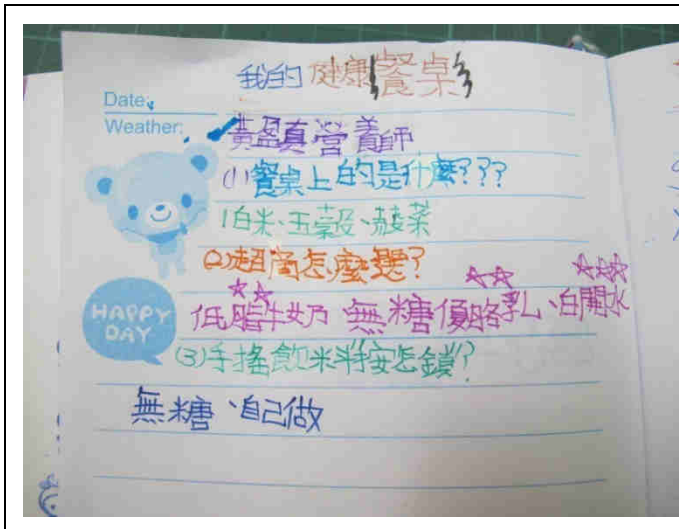 我的健康餐桌
Date:
Weather:
黃盈真營養師
(1)餐桌上的是什麼???
白米、五穀、蔬菜
(2)超商怎麼選?
低脂牛奶 無糖優酪乳、白開水
HAPPY
DAY
(3)手搖飲
無糖、自己做